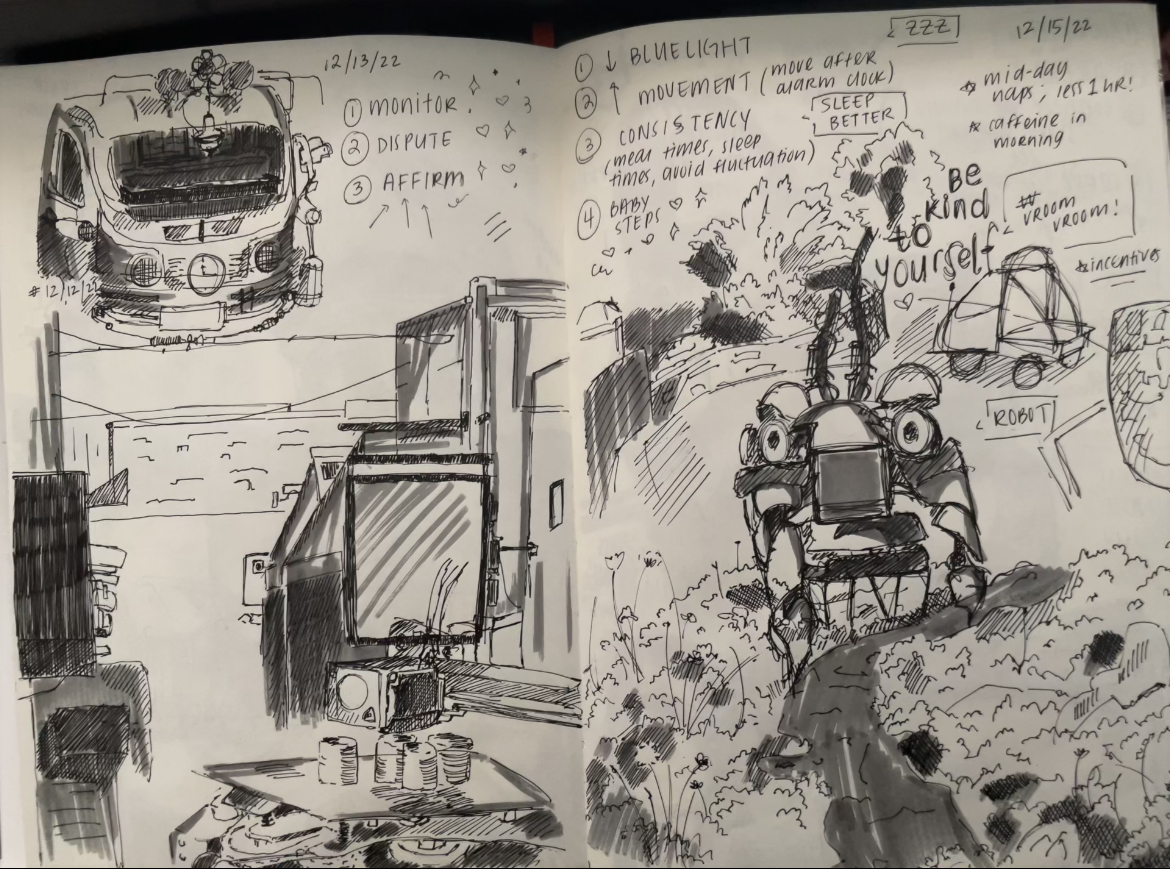 12/13/22
① MONITOR
② DISPUTE
③ AFFIRM
#12/12/22
ZZZ
12/15/22
① ↓ BLUELIGHT
② ↑ MOVEMENT (move after
alarm clock)
③ CONSISTENCY
(meal times, sleep
times, avoid fluctuation)
④ BABY
STEPS
SLEEP
BETTER
☆ mid-day
naps; less 1 hr!
☆ caffeine in
morning
BE
kind
to
yourself
# VROOM
VROOM!
☆incentives
ROBOT